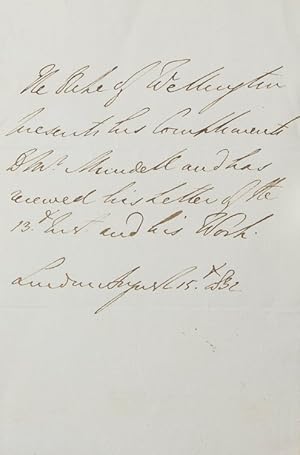 The Duke of Wellington
presents his Compliments
to Mr. Mundell and has
received his Letter of the
13th Inst. and his Work.
London August 15th 1832